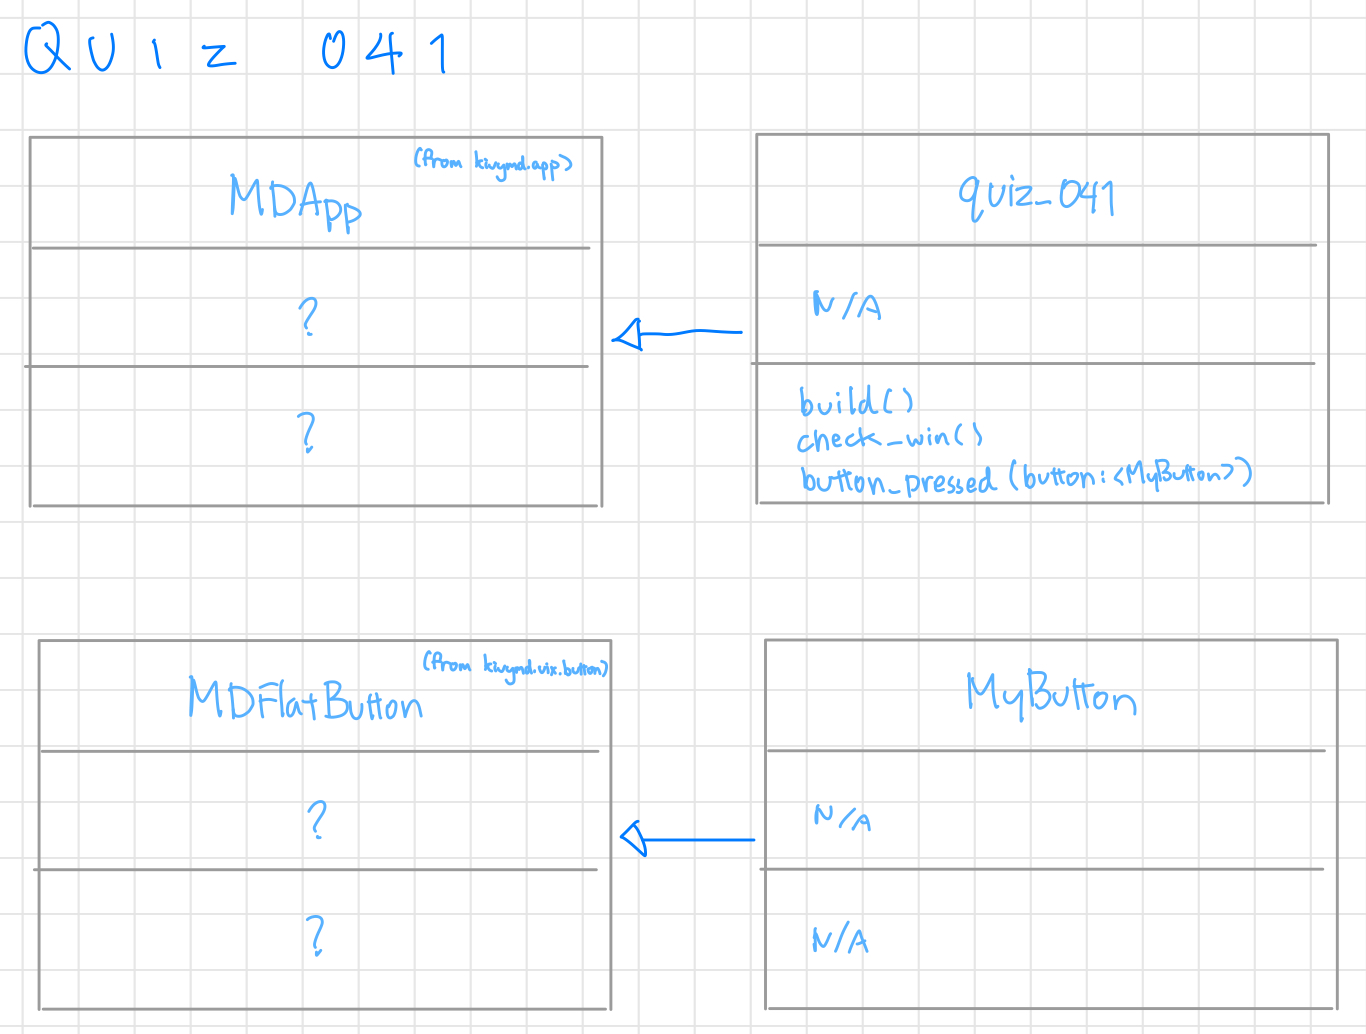 Quiz 041
(from kivymd.app)
MDApp
?
?
quiz_041
N/A
build()
check_win()
button_pressed (button:<MyButton>)
(from kivymd.uix.button)
MDFlatButton
?
?
MyButton
N/A
N/A